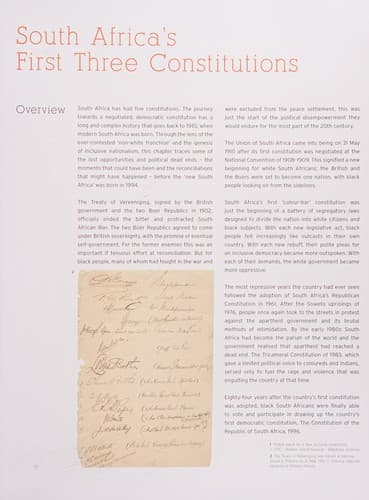 South Africa's
First Three Constitutions
Overview
South Africa has had five constitutions. The journey
towards a negotiated, democratic constitution has a
long and complex history that goes back to 1910, when
modern South Africa was born. Through the lens of the
ever-contested 'non-white franchise' and the genesis
of inclusive nationalism, this chapter traces some of
the lost opportunities and political dead ends – the
moments that could have been and the reconciliations
that might have happened – before the 'new South
Africa' was born in 1994.
The Treaty of Vereeniging, signed by the British
government and the two Boer Republics in 1902,
officially ended the bitter and protracted South
African War. The two Boer Republics agreed to come
under British sovereignty, with the promise of eventual
self-government. For the former enemies this was an
important if tenuous effort at reconciliation. But for
black people, many of whom had fought in the war and
were excluded from the peace settlement, this was
just the start of the political disempowerment they
would endure for most of the 20th century.
The Union of South Africa came into being on 31 May
1910 after its first constitution was negotiated at the
National Convention of 1908-1909. This signified a new
beginning for white South Africans; the British and
the Boers were set to become one nation, with black
people looking on from the sidelines.
South Africa's first 'colour-bar' constitution was
just the beginning of a battery of segregatory laws
designed to divide the nation into white citizens and
black subjects. With each new legislative act, black
people felt increasingly like outcasts in their own
country. With each new rebuff, their polite pleas for
an inclusive democracy became more outspoken. With
each of their demands, the white government became
more oppressive.
The most repressive years the country had ever seen
followed the adoption of South Africa's Republican
Constitution in 1961. After the Soweto uprisings of
1976, people once again took to the streets in protest
against the apartheid government and its brutal
methods of intimidation. By the early 1980s South
Africa had become the pariah of the world and the
government realised that apartheid had reached a
dead end. The Tricameral Constitution of 1983, which
gave a limited political voice to coloureds and Indians,
served only to fuel the rage and violence that was
engulfing the country at that time.
Eighty four years after the country's first constitution
was adopted, black South Africans were finally able
to vote and participate in drawing up the country's
first democratic constitution, The Constitution of the
Republic of South Africa, 1996.